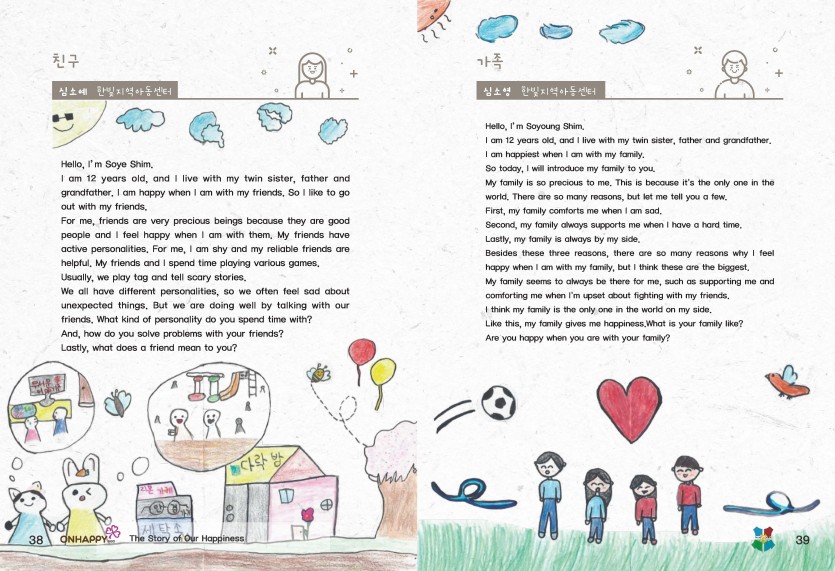 친구
심소예 한빛지역아동센터
Hello, I'm Soye Shim.
I am 12 years old, and I live with my twin sister, father and
grandfather. I am happy when I am with my friends. So I like to go
out with my friends.
For me, friends are very precious beings because they are good
people and I feel happy when I am with them. My friends have
active personalities. For me, I am shy and my reliable friends are
helpful. My friends and I spend time playing various games.
Usually, we play tag and tell scary stories.
We all have different personalities, so we often feel sad about
unexpected things. But we are doing well by talking with our
friends. What kind of personality do you spend time with?
And, how do you solve problems with your friends?
Lastly, what does a friend mean to you?
다락방
세탁소
38 ONHAPPY The Story of Our Happiness
가족
심소영 한빛지역아동센터
Hello, I'm Soyoung Shim.
I am 12 years old, and I live with my twin sister, father and grandfather.
I am happiest when I am with my family.
So today, I will introduce my family to you.
My family is so precious to me. This is because it's the only one in the
world. There are so many reasons, but let me tell you a few.
First, my family comforts me when I am sad.
Second, my family always supports me when I have a hard time.
Lastly, my family is always by my side.
Besides these three reasons, there are so many reasons why I feel
happy when I am with my family, but I think these are the biggest.
My family seems to always be there for me, such as supporting me and
comforting me when I'm upset about fighting with my friends.
I think my family is the only one in the world on my side.
Like this, my family gives me happiness.What is your family like?
Are you happy when you are with your family?
39